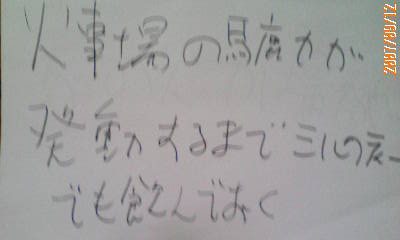 火事場の馬鹿力が
発動するまでミルクティー
でも飲んでおく
2007/09/12